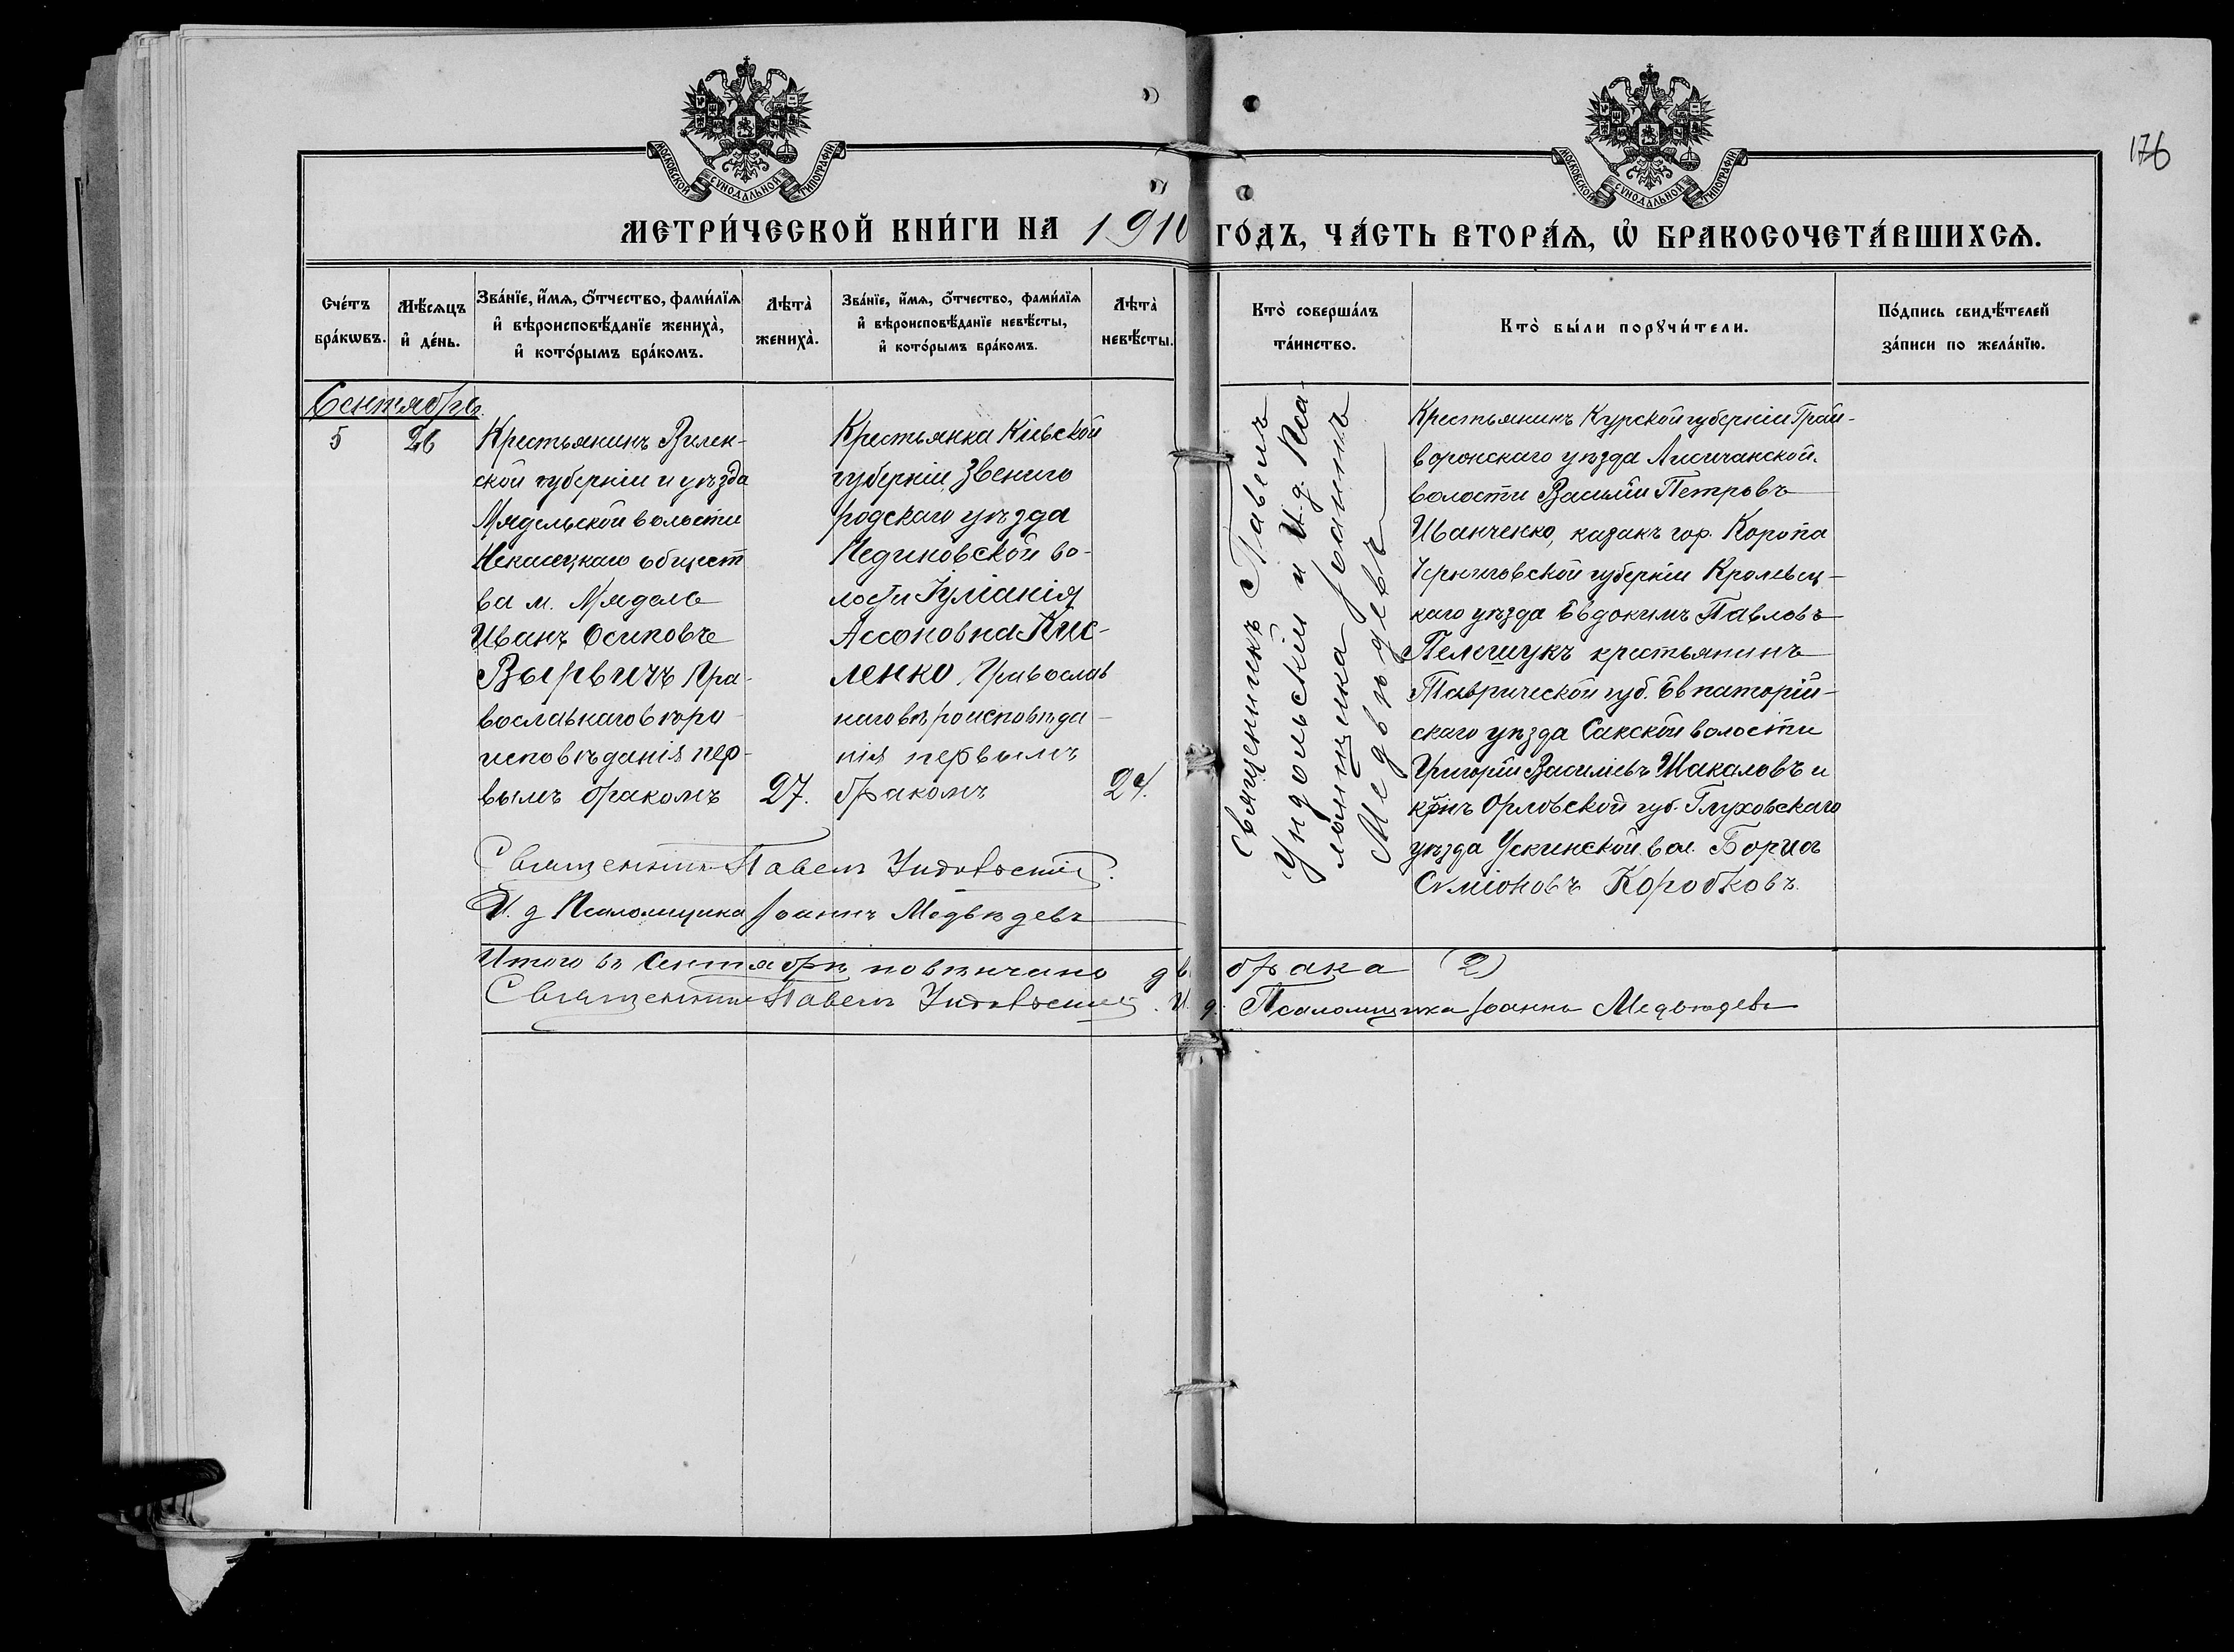 176
МОСКОВСКОЙ СУНОДАЛЬНОЙ ТИПОГРАФІИ
МОСКОВСКОЙ СУНОДАЛЬНОЙ ТИПОГРАФІИ
МЕТРИ́ЧЕСКОЙ КНИ́ГИ НА 1910 ГО́ДЪ, ЧА́СТЬ ВТОРА́Ѧ, Ѡ҆ БРАКОСОЧЕТА́ВШИХСѦ.
Сче́тъ бра́кѡвъ.
Мѣ́сѧцъ и҆ де́нь.
Зва́нїе, и҆́мѧ, ѻ҆́тчество, фами́лїѧ
и҆ вѣроисповѣ́данїе жениха̀,
и҆ кото́рымъ бра́комъ.
Лѣта̀ жениха̀.
Зва́нїе, и҆́мѧ, ѻ҆́тчество, фами́лїѧ
и҆ вѣроисповѣ́данїе невѣ́сты,
и҆ кото́рымъ бра́комъ.
Лѣта̀ невѣ́сты.
Кто̀ соверша́лъ
та́инство.
Кто̀ бы́ли порꙋчи́тели.
По́дпись свидѣ́телей
за́писи по жела́нїю.
Сентябрь.
5
26
Крестьянинъ Вилен-
ской губерніи и уѣзда
Мядельской волости
Некасецкаго общест
ва м. Мядель
Иванъ Осиповъ
Вырвичъ Пра-
вославнаго вѣро-
исповѣданія пер-
вымъ бракомъ
27.
Крестьянка Кіевской
губерніи, Звениго
родскаго уѣзда
Пединовской во-
лости Іуліанія
Ассоновна Кис-
ленко Православ
наго вѣроисповѣда-
нія первымъ
бракомъ
24.
Священникъ Павелъ
Ундольскій и И. д. Пса-
ломщика Іоаннъ
Медвѣдевъ
Крестьянинъ Курской губерніи Грай-
воронскаго уѣзда Лисичанской
волости Василій Петровъ
Иванченко, казакъ гор. Коропа
Черниговской губерніи Кролевец-
каго уѣзда Евдокимъ Павловъ
Пелешукъ крестьянинъ
Таврической губ. Евпаторій-
скаго уѣзда Сакской волости
Григорій Василіевъ Шакаловъ и
кр̃нъ Орловской губ. Глуховскаго
уѣзда Ускинской вол. Борисъ
Сѵміоновъ Коробковъ.
Священникъ Павелъ Ундольскій.
И. д. Псаломщика Іоаннъ Медвѣдевъ
Итого въ Сентябрѣ повѣнчано дв брака (2)
Священникъ Павелъ Ундольскій. И. д. Псаломщика Іоаннъ Медвѣдевъ